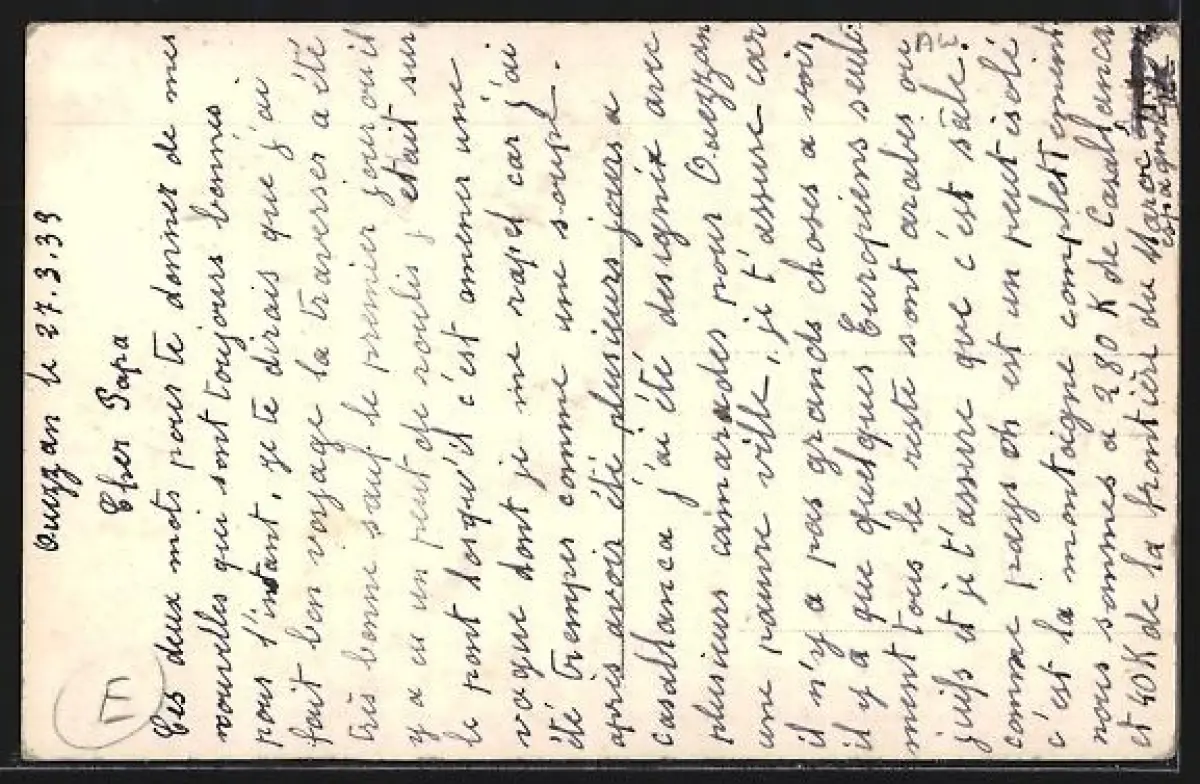 Ouezzan le 27.3.39
Cher Papa
Ces deux mots pour te donner de mes
nouvelles qui sont toujours bonnes
pour l'instant, je te dirais que j'ai
fait bon voyage la traverser a été
très bonne sauf le premier jour ou il
y a eu un peut de roulis j' etait sur
le pont lorsqu'il c'est amener une
vague dont je me rapel car j'ai
été tremper comme une soupe.
après avoir été plusieurs jours a
Casablanca j'ai été designix avec
plusieurs camarades pour Ouezzan
une pauvre ville, je t'assure car
il n'y a pas grands choses a voir
il y a que quelques Européens seule
ment tous le reste sont arabes ou
juifs et je t'assure que c'est sâle.
comme pays on est un peut isolé
c'est la montaigne complétement
nous sommes a 280 K de Casablanca
et 40 K de la frontière du Maroc
espagnole
F